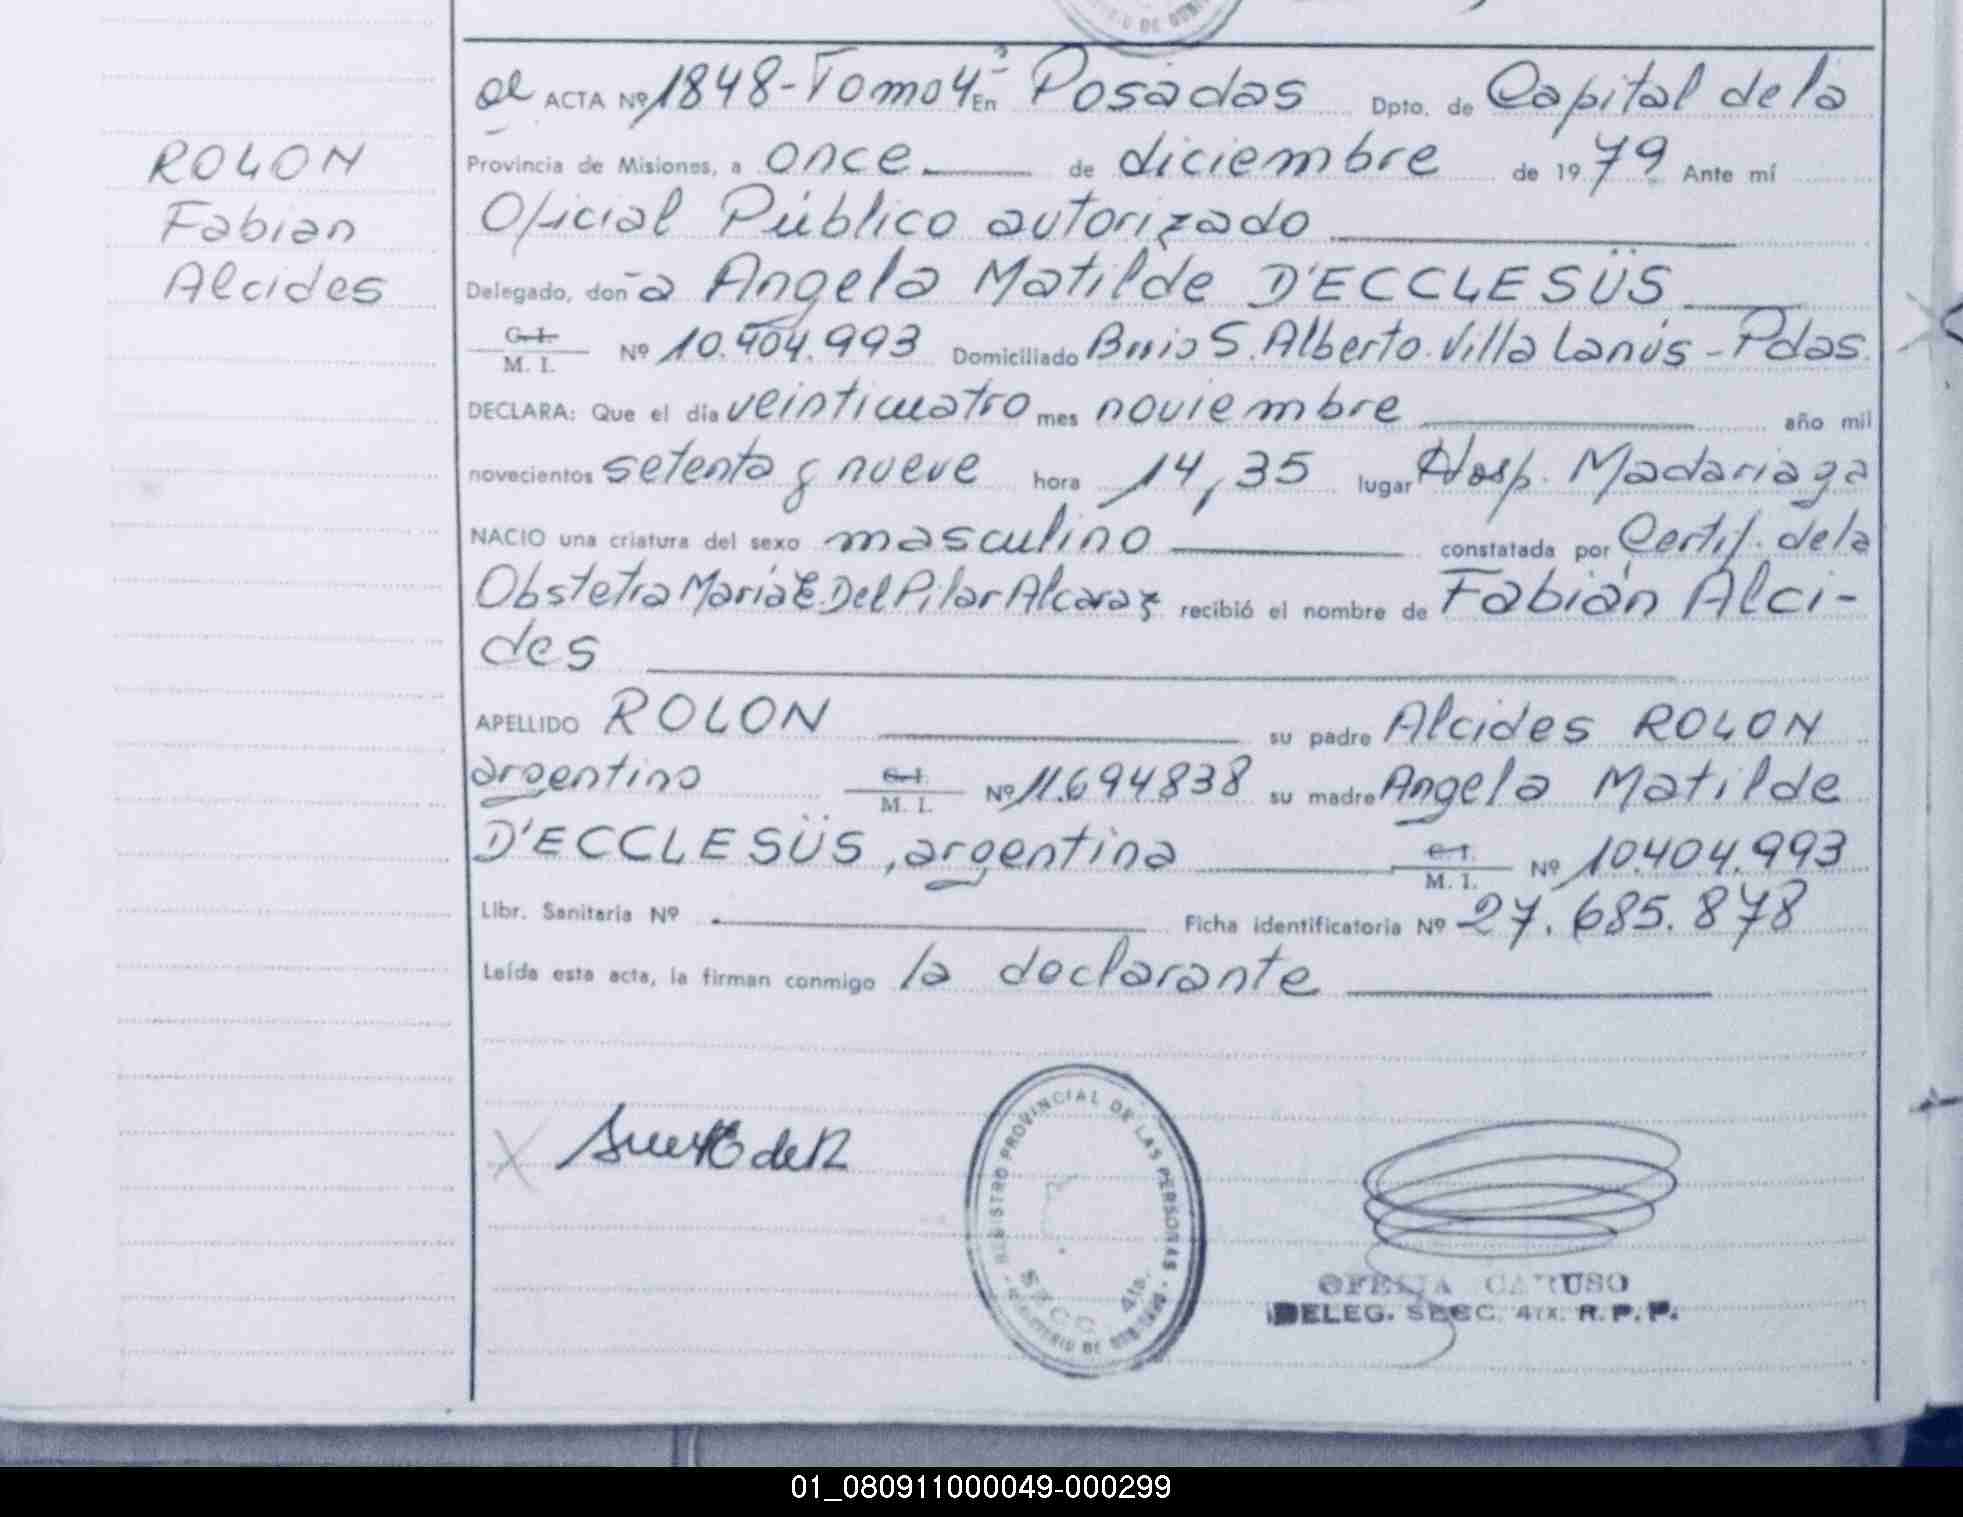 ROLON
Fabian
Alcides
al ACTA Nº 1848-Tomo 4º En Posadas Dpto. de Capital de la
Provincia de Misiones, a once de diciembre de 1979 Ante mí
Oficial Público autorizado
Delegado, doña Angela Matilde D'ECCLESÜS
C. I.
M. I. Nº 10.404.993 Domiciliado Brrio S. Alberto. Villa Lanús - Pdas.
DECLARA: Que el día veinticuatro mes noviembre año mil
novecientos setenta y nueve hora 14,35 lugar Hosp. Madariaga
NACIO una criatura del sexo masculino constatada por Certif. de la
Obstetra María E. Del Pilar Alcaraz recibió el nombre de Fabián Alci-
des
APELLIDO ROLON su padre Alcides ROLON
argentino C. I. M. I. Nº 11.694.838 su madre Angela Matilde
D'ECCLESÜS, argentina C. I. M. I. Nº 10.404.993
Libr. Sanitaria Nº Ficha identificatoria Nº 27.685.878
Leída esta acta, la firman conmigo la declarante
REGISTRO PROVINCIAL DE LAS PERSONAS
SECC. 4ta.
MINISTERIO DE GOBIERNO
OFELIA CARUSO
DELEG. SECC. 4TA. R. P. P.
01_080911000049-000299